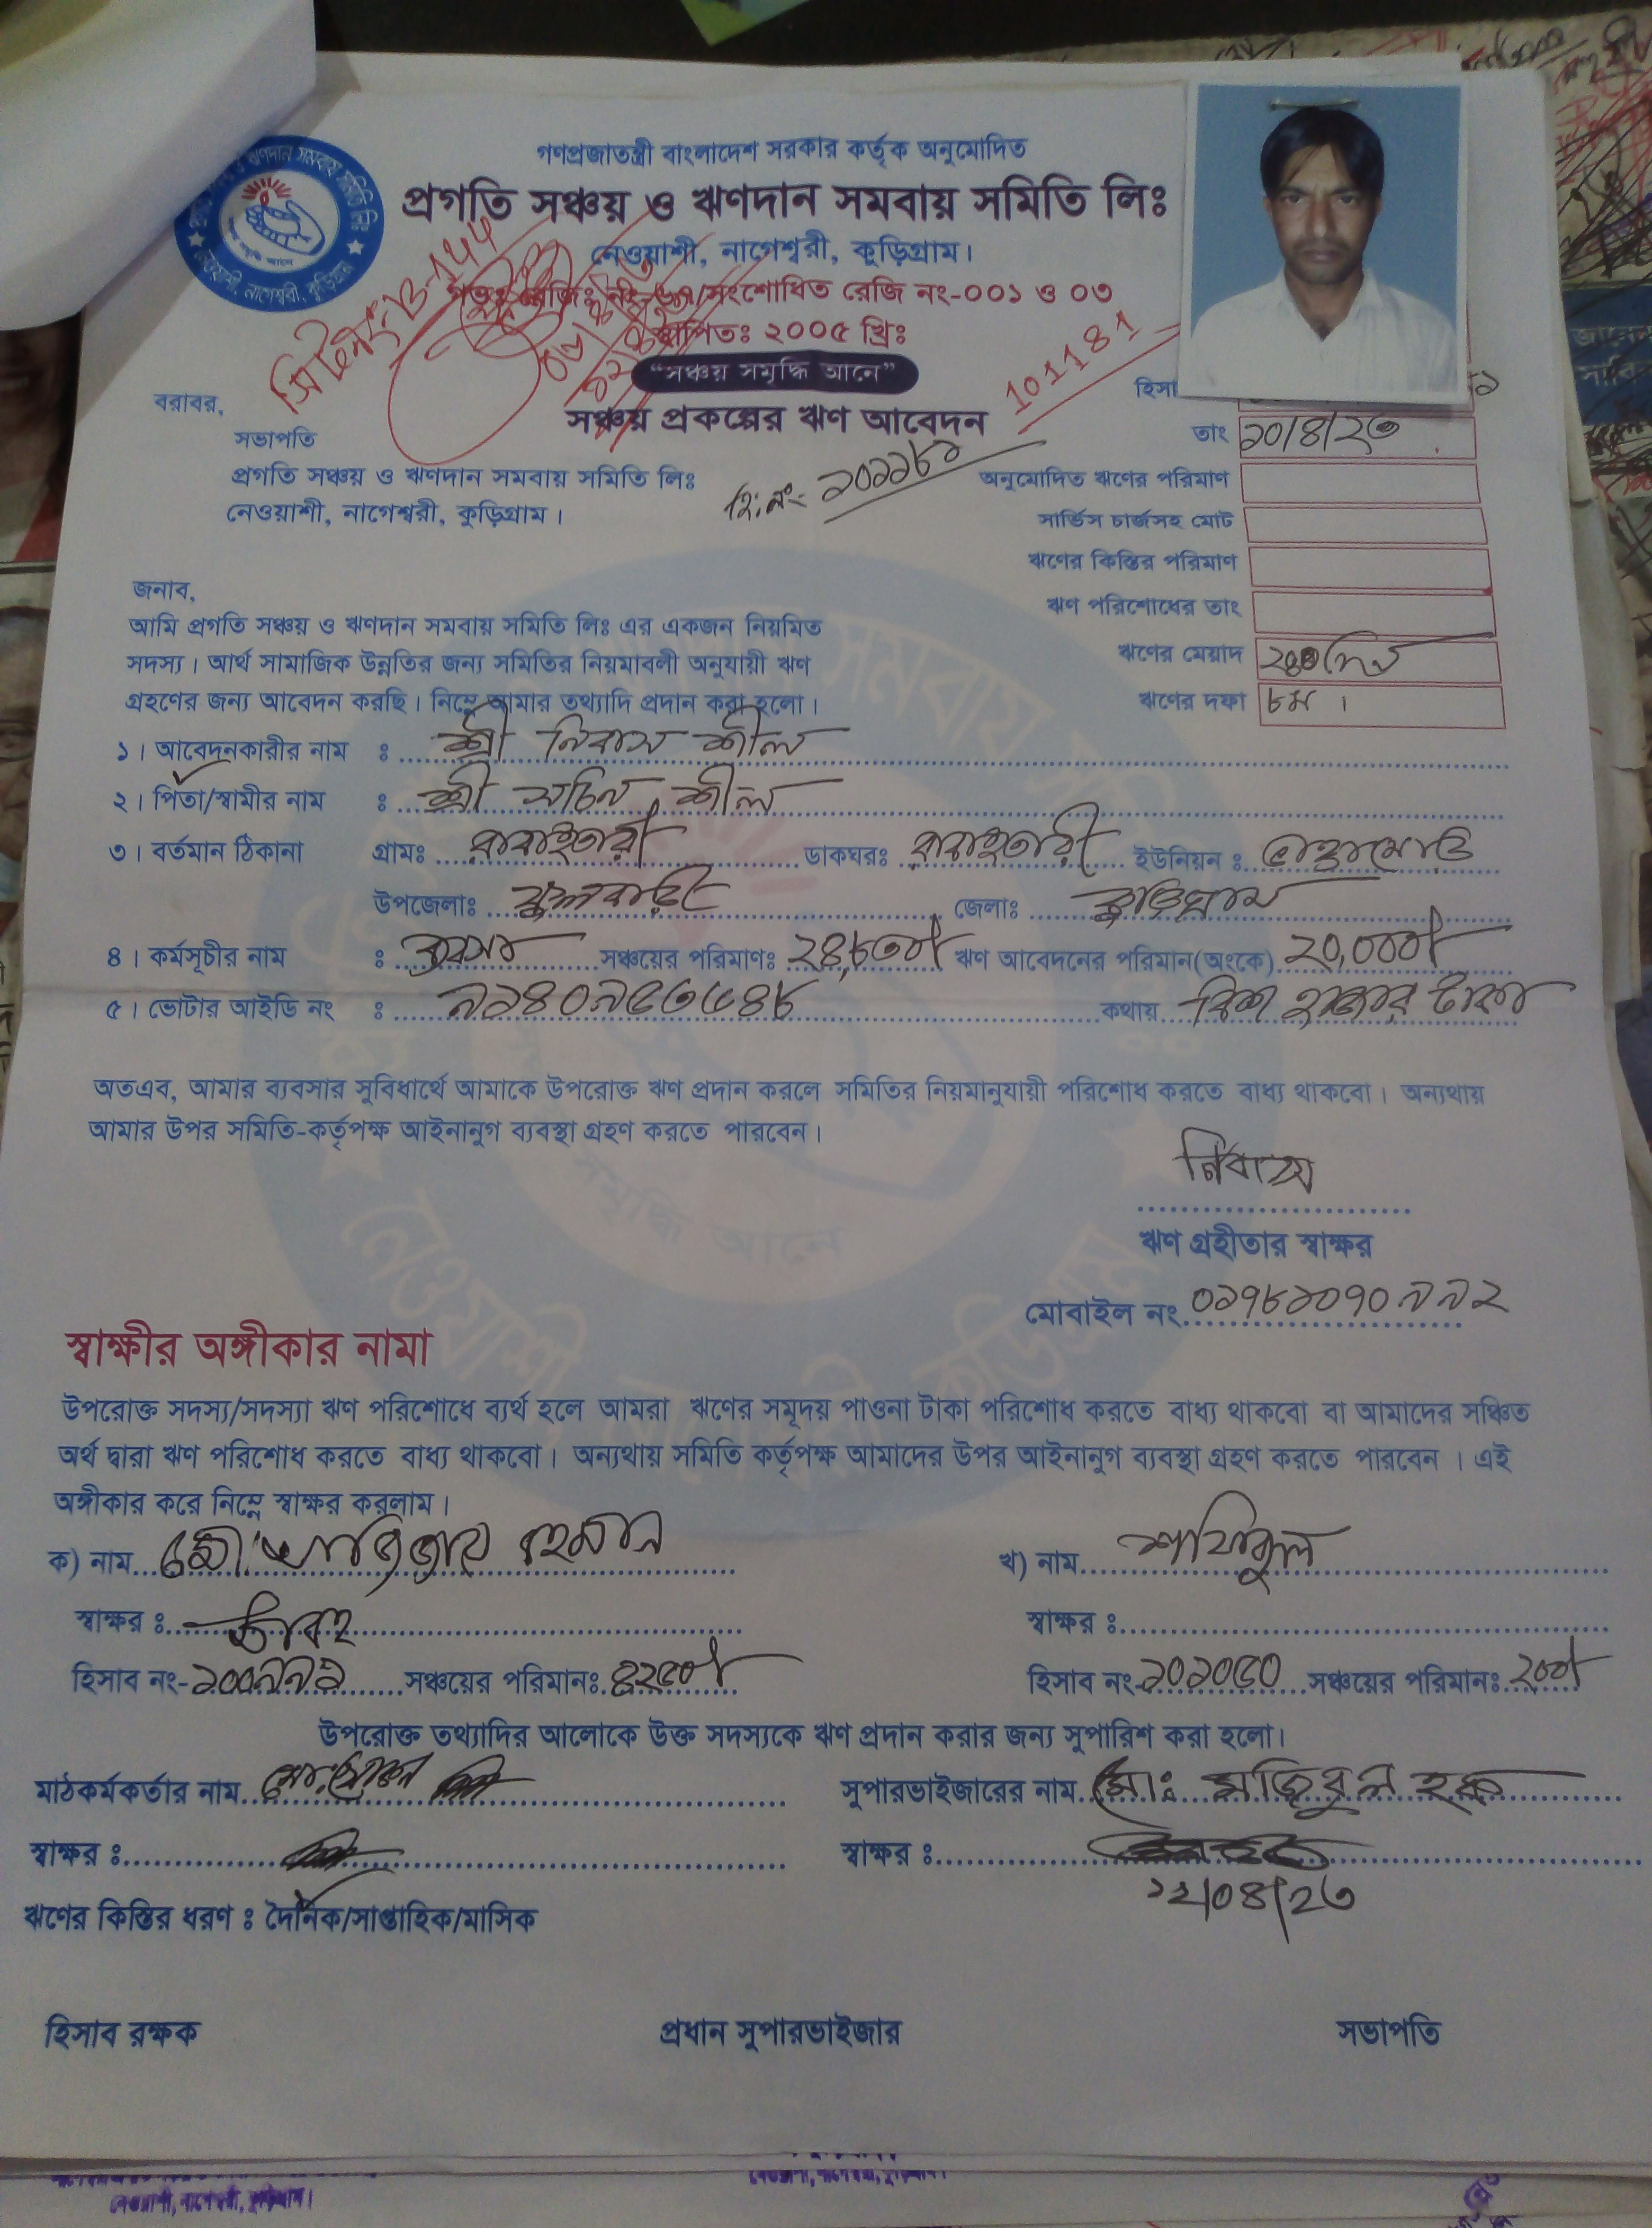 গণপ্রজাতন্ত্রী বাংলাদেশ সরকার কর্তৃক অনুমোদিত
প্রগতি সঞ্চয় ও ঋণদান সমবায় সমিতি লিঃ
নেওয়াশী, নাগেশ্বরী, কুড়িগ্রাম।
গভঃ রেজিঃ নং-৬৭/সংশোধিত রেজি নং-০০১ ও ০৩
স্থাপিতঃ ২০০৫ খ্রিঃ
"সঞ্চয় সমৃদ্ধি আনে"
101181
সঞ্চয় প্রকল্পের ঋণ আবেদন
হিঃ নং- ১০১১৮১
বরাবর,
সভাপতি
প্রগতি সঞ্চয় ও ঋণদান সমবায় সমিতি লিঃ
নেওয়াশী, নাগেশ্বরী, কুড়িগ্রাম।
তাং ১০/৪/২৩
অনুমোদিত ঋণের পরিমাণ
সার্ভিস চার্জসহ মোট
ঋণের কিস্তির পরিমাণ
ঋণ পরিশোধের তাং
ঋণের মেয়াদ
ঋণের দফা ৮ম।
জনাব,
আমি প্রগতি সঞ্চয় ও ঋণদান সমবায় সমিতি লিঃ এর একজন নিয়মিত
সদস্য। আর্থ সামাজিক উন্নতির জন্য সমিতির নিয়মাবলী অনুযায়ী ঋণ
গ্রহণের জন্য আবেদন করছি। নিম্নে আমার তথ্যাদি প্রদান করা হলো।
১। আবেদনকারীর নাম : শ্রী নিবাস শীল
২। পিতা/স্বামীর নাম : শ্রী সচিন শীল
৩। বর্তমান ঠিকানা গ্রামঃ ডাকঘরঃ ইউনিয়ন : ভাঙ্গামোড়
উপজেলাঃ ফুলবাড়ী জেলাঃ কুড়িগ্রাম
৪। কর্মসূচীর নাম : ব্যবসা সঞ্চয়ের পরিমাণঃ ২৪,৮৩০/ ঋণ আবেদনের পরিমান(অংকে) ২০,০০০/
৫। ভোটার আইডি নং : কথায় বিশ হাজার টাকা
অতএব, আমার ব্যবসার সুবিধার্থে আমাকে উপরোক্ত ঋণ প্রদান করলে সমিতির নিয়মানুযায়ী পরিশোধ করতে বাধ্য থাকবো। অন্যথায়
আমার উপর সমিতি-কর্তৃপক্ষ আইনানুগ ব্যবস্থা গ্রহণ করতে পারবেন।
নিবাস
ঋণ গ্রহীতার স্বাক্ষর
মোবাইল নং ০১৭৮১০৭০৯৯২
স্বাক্ষীর অঙ্গীকার নামা
উপরোক্ত সদস্য/সদস্যা ঋণ পরিশোধে ব্যর্থ হলে আমরা ঋণের সমূদয় পাওনা টাকা পরিশোধ করতে বাধ্য থাকবো বা আমাদের সঞ্চিত
অর্থ দ্বারা ঋণ পরিশোধ করতে বাধ্য থাকবো। অন্যথায় সমিতি কর্তৃপক্ষ আমাদের উপর আইনানুগ ব্যবস্থা গ্রহণ করতে পারবেন। এই
অঙ্গীকার করে নিম্নে স্বাক্ষর করলাম।
ক) নাম মো রহমান
খ) নাম শফিকুল
স্বাক্ষর :
স্বাক্ষর :
হিসাব নং- ১০০৯৯১ সঞ্চয়ের পরিমানঃ ৪২৫০/
হিসাব নং- ১০১০৫০ সঞ্চয়ের পরিমানঃ ২০০/
উপরোক্ত তথ্যাদির আলোকে উক্ত সদস্যকে ঋণ প্রদান করার জন্য সুপারিশ করা হলো।
মাঠকর্মকর্তার নাম
সুপারভাইজারের নাম মোঃ মজিবুল হক
স্বাক্ষর :
স্বাক্ষর :
১২/০৪/২৩
ঋণের কিস্তির ধরণ : দৈনিক/সাপ্তাহিক/মাসিক
হিসাব রক্ষক
প্রধান সুপারভাইজার
সভাপতি
নেওয়াশী, নাগেশ্বরী, কুড়িগ্রাম।